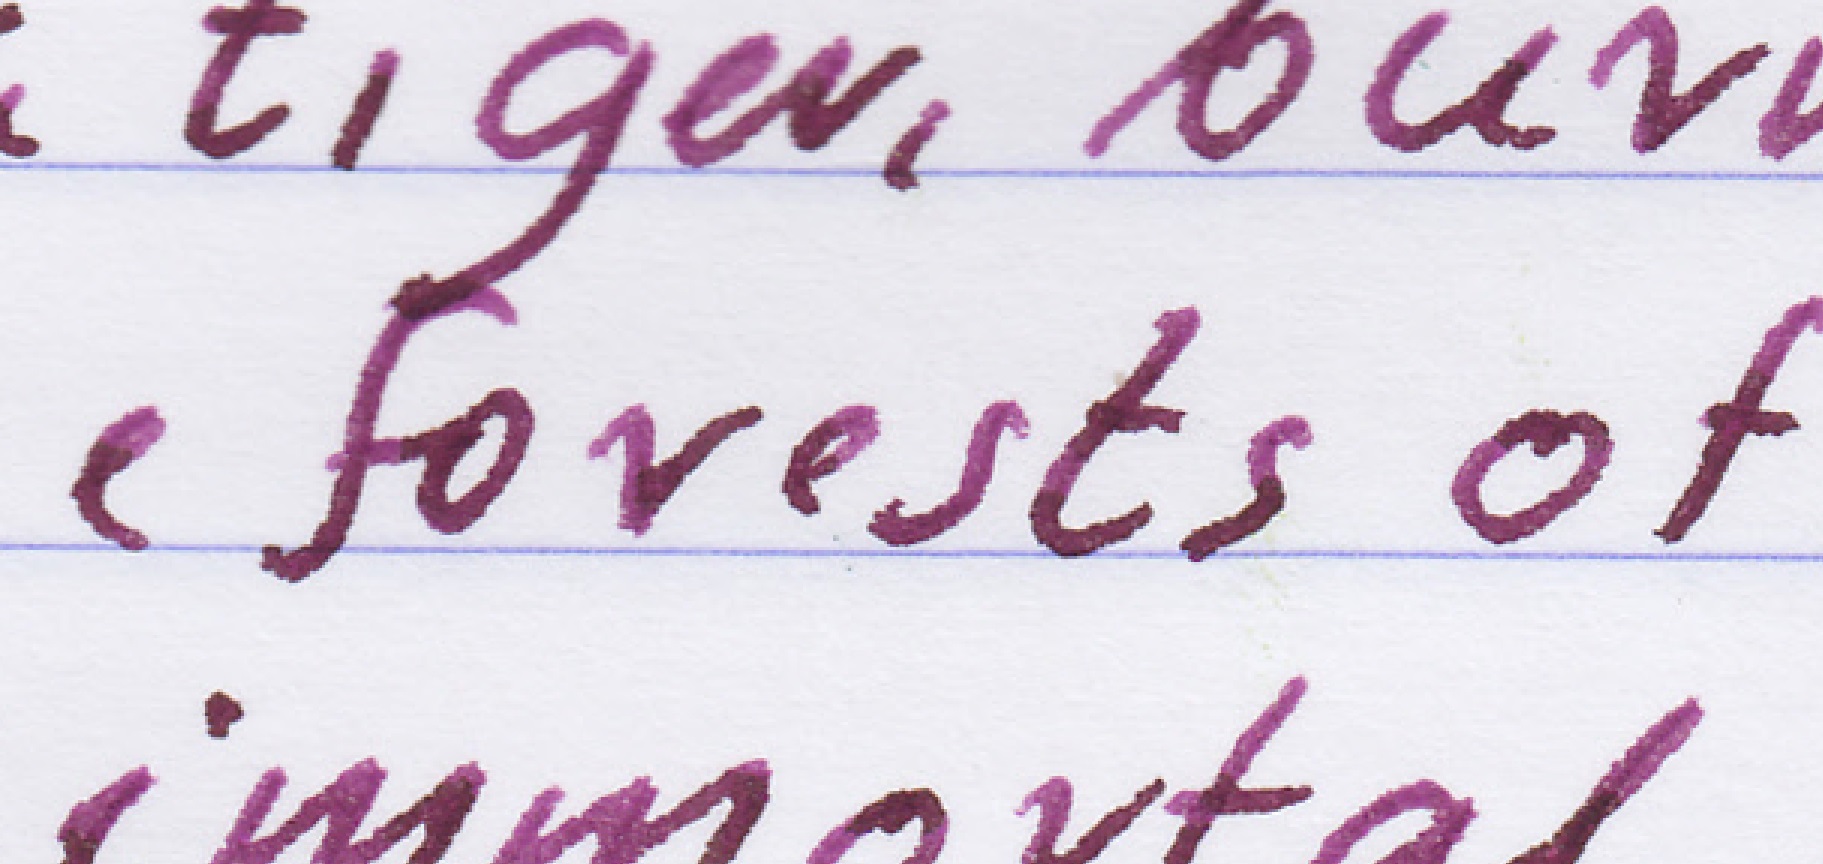 tiger, burn
e forests of
immortal